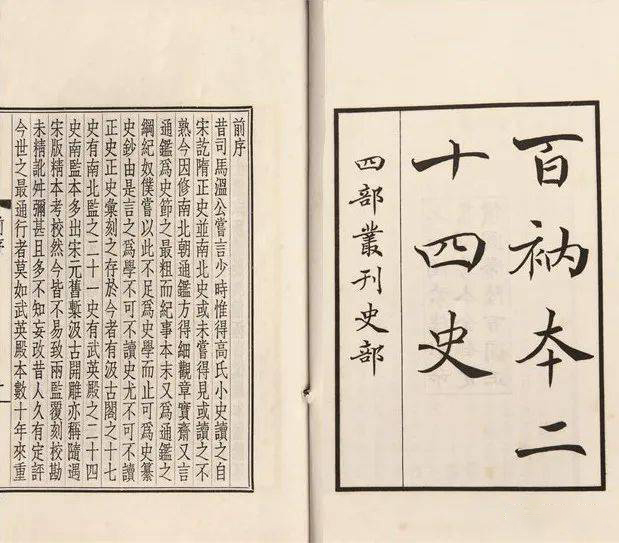 百衲本二
十四史
四部叢刊史部
前序
昔司馬溫公嘗言少時惟得高氏小史讀之自
宋訖隋正史並南北史或未嘗得見或讀之不
熟今因修南北朝通鑑方得細觀章實齋又言
通鑑爲史節之最粗而紀事本末又爲通鑑之
綱紀奴僕嘗以此不足爲史學而止可爲史纂
史鈔由是言之爲學不可不讀史尤不可不讀
正史正史彙刻之存於今者有汲古閣之十七
史有南北監之二十一史有武英殿之二十四
史南監本多出宋元舊槧汲古開雕亦稱隨遇
宋版精本考校然今皆不易致兩監覆刻校勘
未精訛舛彌甚且多不知妄改昔人久有定評
今世之最通行者莫如武英殿本數十年來重